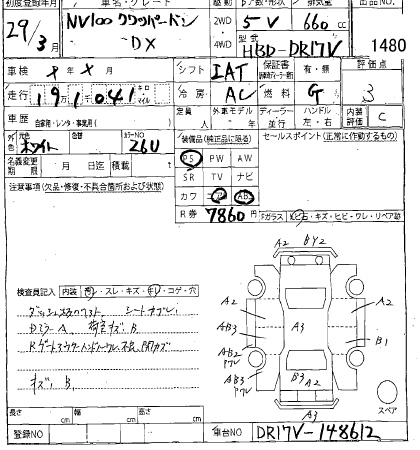 初度登録年月 車名・グレード 駆動 ドア数・形状 排気量 出品NO.
29/3月 NV100クリッパーバン DX 2WD・4WD 5 V 660 cc
型式 HBD-DR17V 1480
車検 ×年×月 シフト IAT 保証書 有・無 評価点
走行 191,041 キロ マイル 冷房 AC 燃料 G 3
車歴 自家用・レンタ・事業用 定員 人 外車モデル 年 ディーラー・並行 ハンドル 左・右 内装評価 C
外色 元色 ホワイト 色替 カラーNO 26U 装備品(純正品に限る) セールスポイント(正常に作動するもの)
名義変更期限 月 日迄 積載 t
PS PW AW
SR TV ナビ
カワ エアB ABS
R券 7860円
注意事項(欠品・修復・不具合箇所および状態)
Fガラス 飛び石・キズ・ヒビ・ワレ・リペア跡
検査員記入 内装 ・スレ・キズ・キレ・コゲ・穴
シートヨゴレ
Dミラー A 荷室キズ B
キズ B
A2 BY2
A2 A2
AB3 A3 B1
AB2
AB3 B3 A2
A3
スペア
長さ cm 幅 cm 高さ cm
登録NO 車台NO DR17V-148612